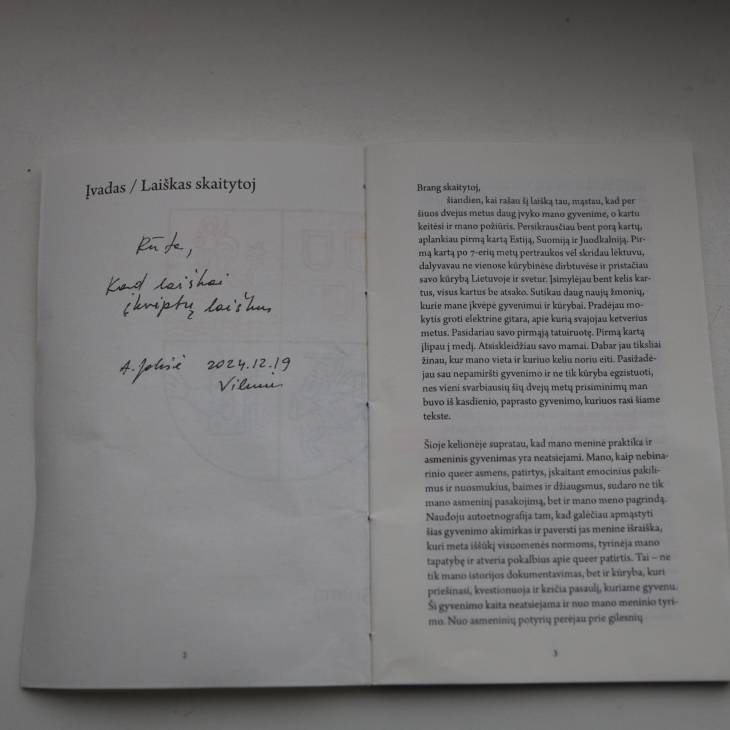 Įvadas / Laiškas skaitytoj
Rūta,
Kad laiškai
įkvėptų laiškus
2024.12.19
Vilnius
2
Brang skaitytoj,
šiandien, kai rašau šį laišką tau, mąstau, kad per
šiuos dvejus metus daug įvyko mano gyvenime, o kartu
keitėsi ir mano požiūris. Persikrausčiau bent porą kartų,
aplankiau pirmą kartą Estiją, Suomiją ir Juodkalniją. Pir-
mą kartą po 7-erių metų pertraukos vėl skridau lėktuvu,
dalyvavau ne vienose kūrybinėse dirbtuvėse ir pristačiau
savo kūrybą Lietuvoje ir svetur. Įsimylėjau bent kelis kar-
tus, visus kartus be atsako. Sutikau daug naujų žmonių,
kurie mane įkvėpė gyvenimui ir kūrybai. Pradėjau mo-
kytis groti elektrine gitara, apie kurią svajojau ketverius
metus. Pasidariau savo pirmąją tatuiruotę. Pirmą kartą
įlipau į medį. Atsiskleidžiau savo mamai. Dabar jau tiksliai
žinau, kur mano vieta ir kuriuo keliu noriu eiti. Pasižadė-
jau sau nepamiršti gyvenimo ir ne tik kūryba egzistuoti,
nes vieni svarbiausių šių dvejų metų prisiminimų man
buvo iš kasdienio, paprasto gyvenimo, kuriuos rasi šiame
tekste.
Šioje kelionėje supratau, kad mano meninė praktika ir
asmeninis gyvenimas yra neatsiejami. Mano, kaip nebina-
rinio queer asmens, patirtys, įskaitant emocinius pakili-
mus ir nuosmukius, baimes ir džiaugsmus, sudaro ne tik
mano asmeninį pasakojimą, bet ir mano meno pagrindą.
Naudoju autoetnografiją tam, kad galėčiau apmąstyti
šias gyvenimo akimirkas ir paversti jas menine išraiška,
kuri meta iššūkį visuomenės normoms, tyrinėja mano
tapatybę ir atveria pokalbius apie queer patirtis. Tai – ne
tik mano istorijos dokumentavimas, bet ir kūryba, kuri
priešinasi, kvestionuoja ir keičia pasaulį, kuriame gyvenu.
Ši gyvenimo kaita neatsiejama ir nuo mano meninio tyri-
mo. Nuo asmeninių potyrių perėjau prie gilesnių
3